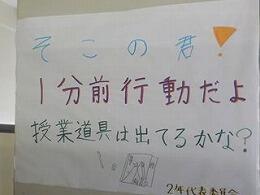 そこの君！
1分前行動だよ
授業道具は出てるかな？
2年代表委員会